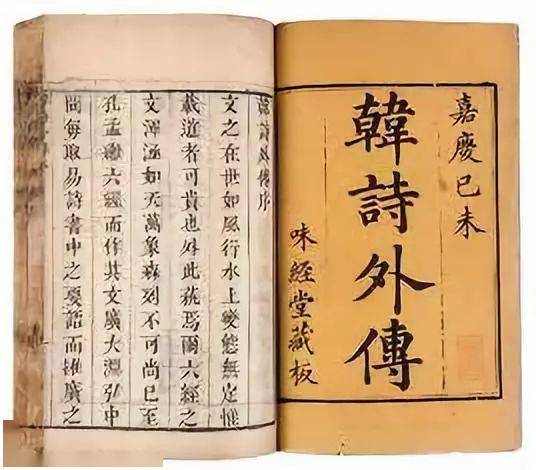 嘉慶己未
韓詩外傳
味經堂藏板
韓詩外傳序
文之在世如風行水上變態無定惟
載道者可貴也外此蔑焉爾六經之
文渾涵如天萬象森列不可尚已至
孔孟聯六經而作其文廣大淵弘中
間每取易詩書中之要語而推廣之